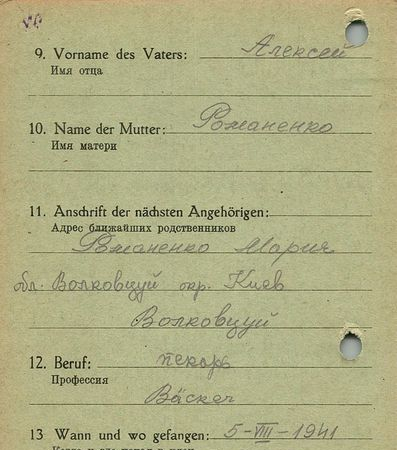 9. Vorname des Vaters: Алексей
Имя отца
10. Name der Mutter: Романенко
Имя матери
11. Anschrift der nächsten Angehörigen:
Адрес ближайших родственников
Романенко Мария
обл: Волковцуй окр. Киев
Волковцуй
12. Beruf: пекарь
Профессия
Bäcker
13 Wann und wo gefangen: 5-VIII-1941